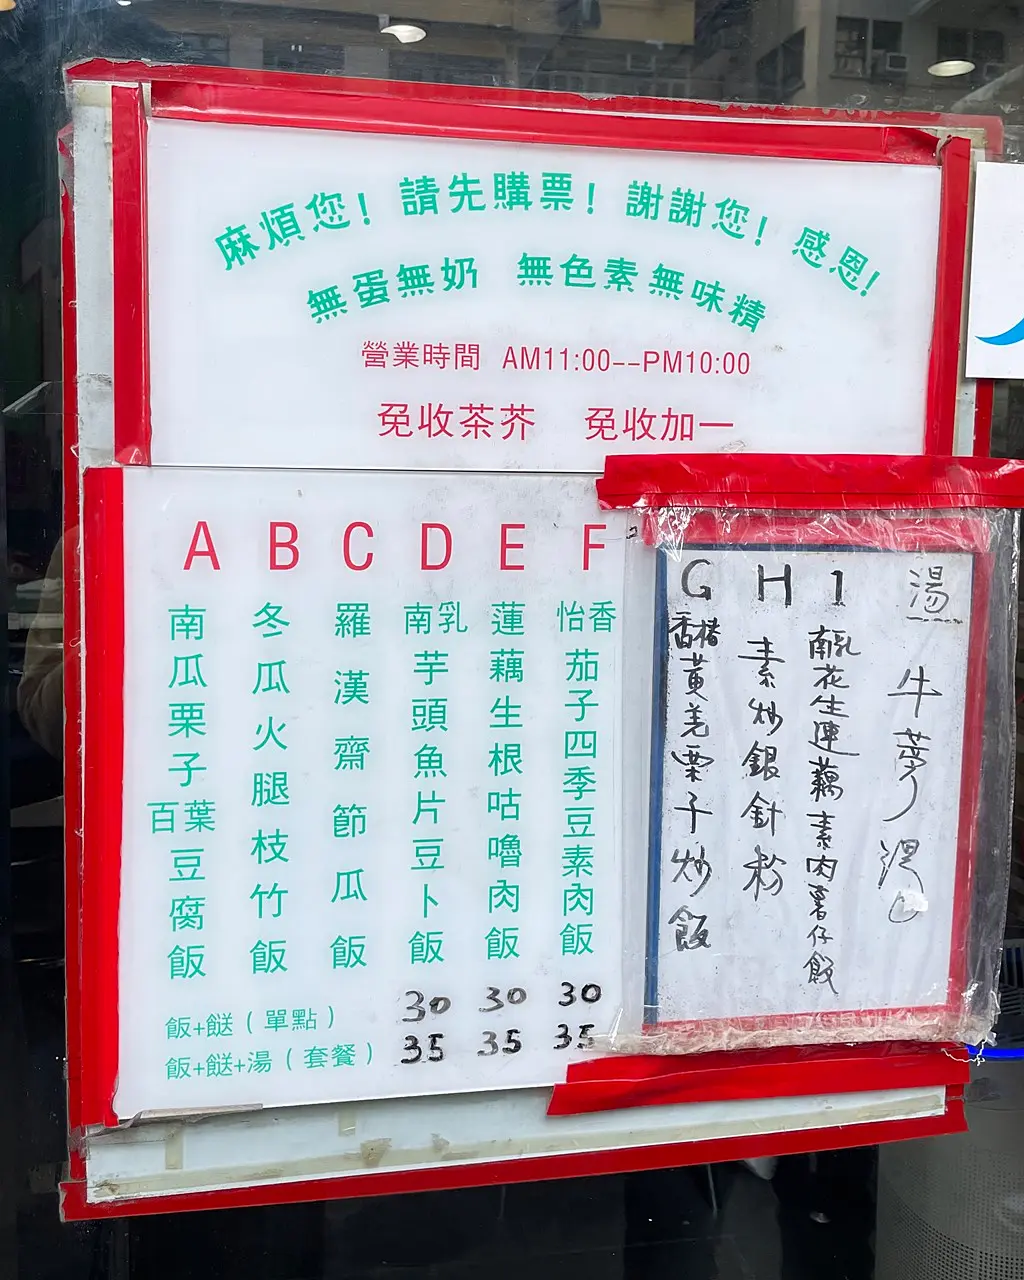 麻煩您! 請先購票! 謝謝您! 感恩!
無蛋無奶 無色素無味精
營業時間 AM11:00--PM10:00
免收茶芥 免收加一
A
南瓜栗子百葉豆腐飯
B
冬瓜火腿枝竹飯
C
羅漢齋節瓜飯
D
南乳芋頭魚片豆卜飯
E
蓮藕生根咕嚕肉飯
F
怡香茄子四季豆素肉飯
飯+餸(單點) 30 30 30
飯+餸+湯(套餐) 35 35 35
G
香椿黃羌栗子炒飯
H
素炒銀針粉
I
南乳花生連藕素肉薯仔飯
湯
牛蒡湯